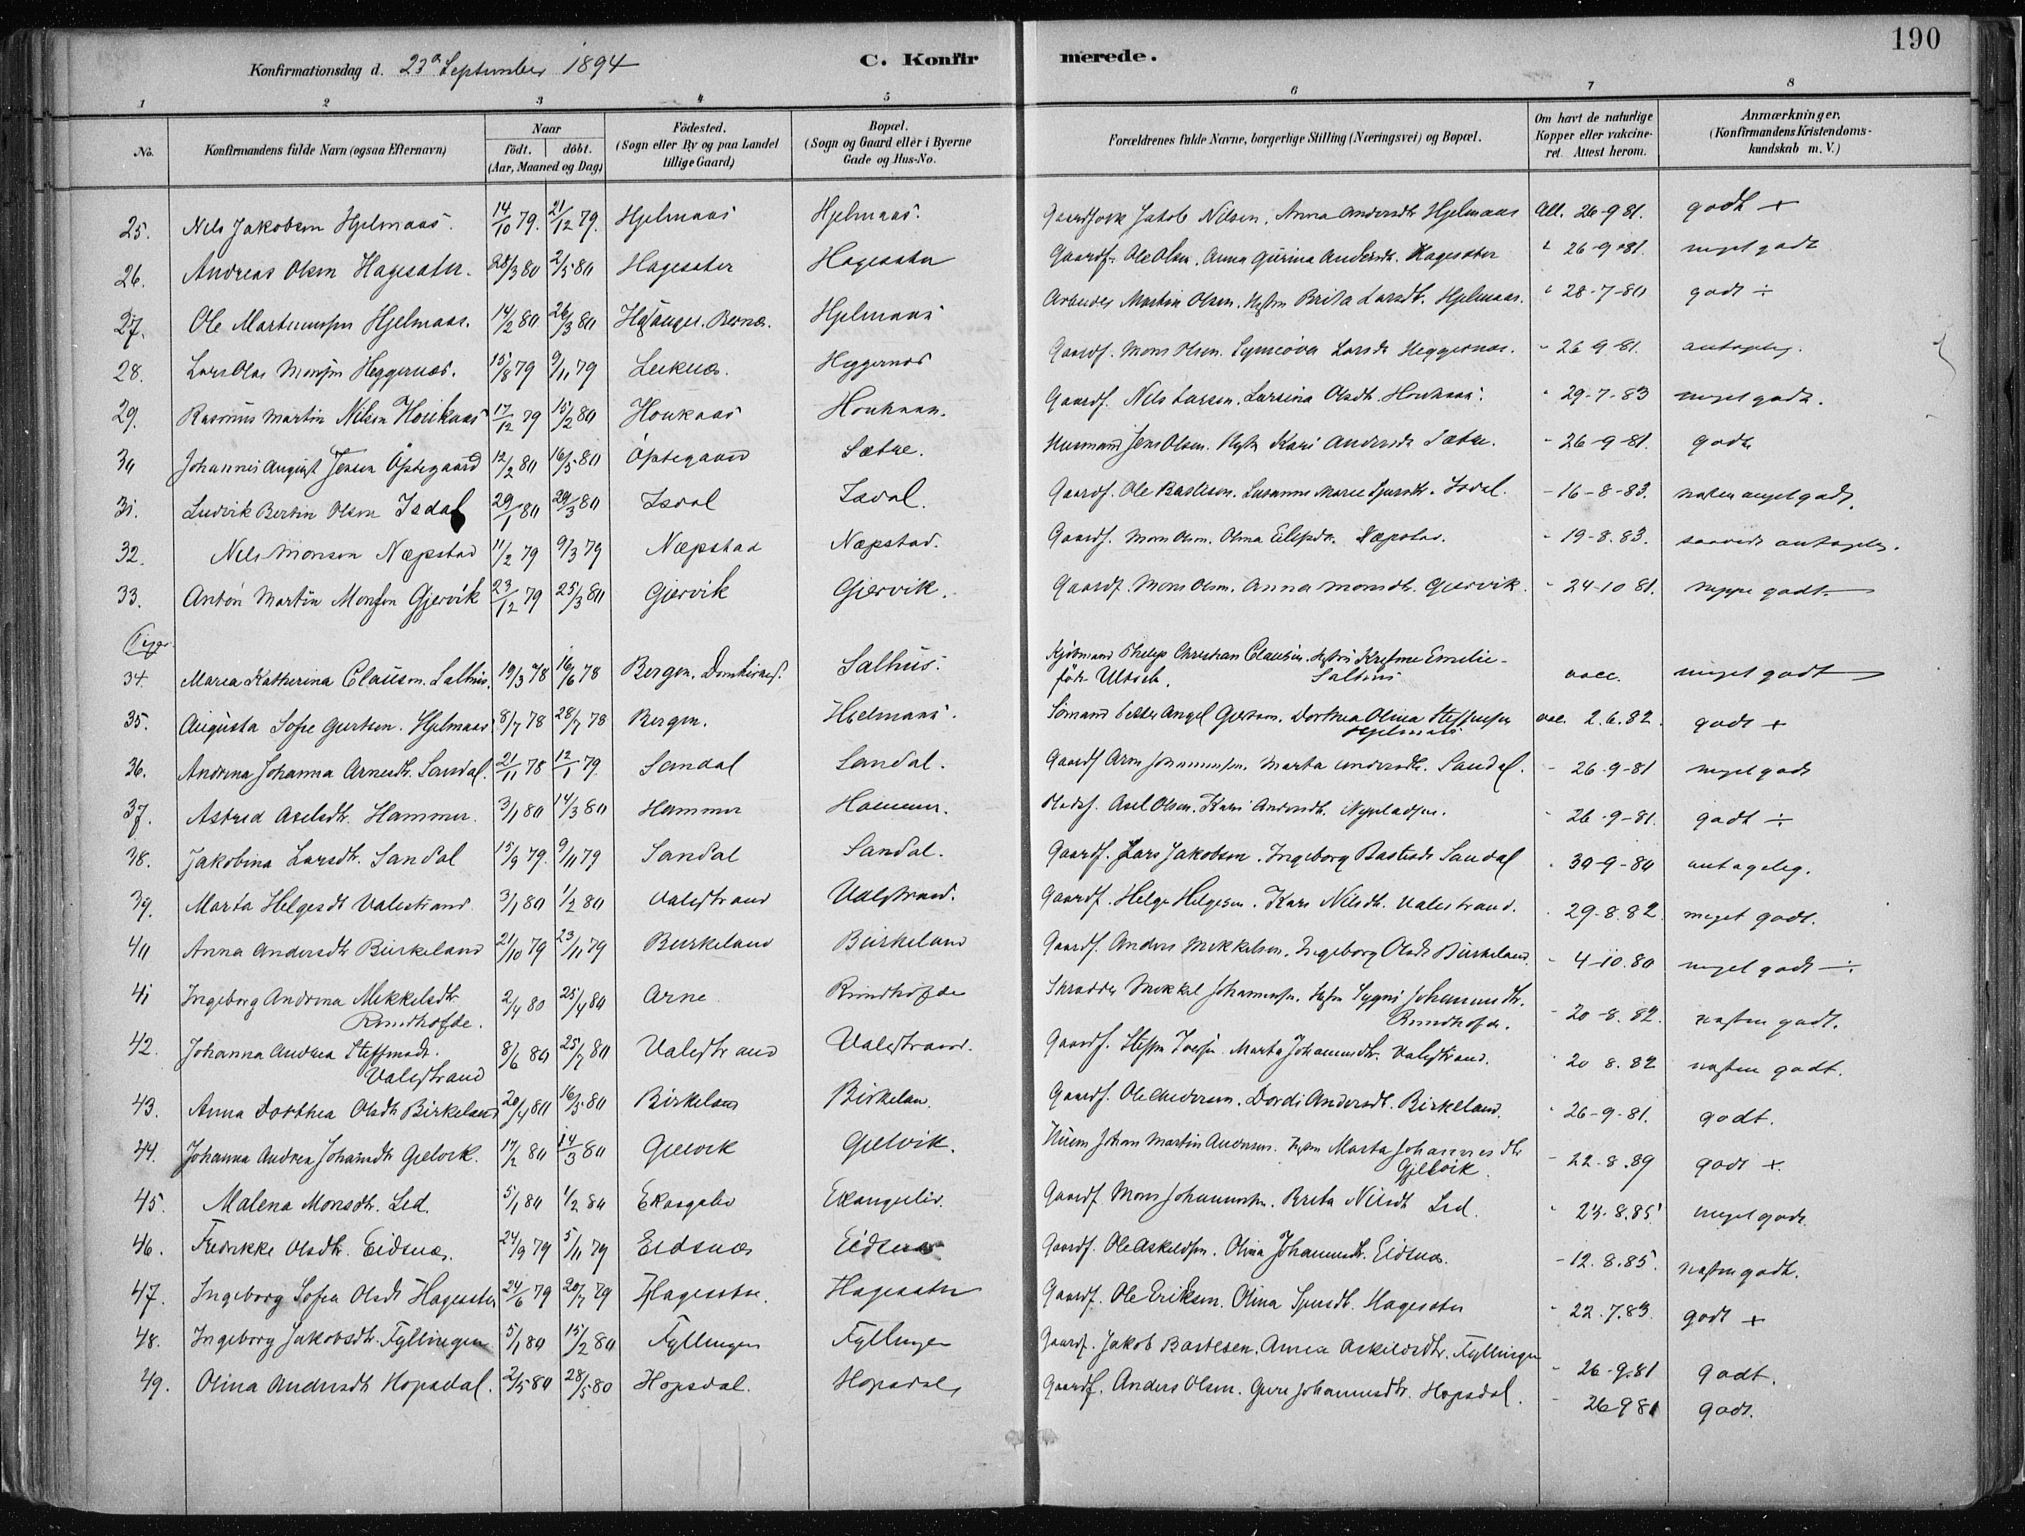 190
Konfirmationsdag d. 23de September 1894 C. Konfir merede.
1 2 3 4 5 6 7 8
No. Konfirmandens fulde Navn (ogsaa Efternavn) Naar Födt. döbt. (Aar, Maaned og Dag) Födested. (Sogn eller By og paa Landet tillige Gaard) Bopæl. (Sogn og Gaard eller i Byerne Gade og Hus-No. Forældrenes fulde Navne, borgerlige Stilling (Næringsvei) og Bopæl. Om havt de naturlige Kopper eller vakcineret. Attest herom. Anmærkninger. (Konfirmandens Kristendomskundskab m. V.)
25. Nils Jakobsen Hjelmaas. 14/10 79. 21/12 79. Hjelmaas Hjelmaas. Jakob Nilsen. Anna Andersdtr Hjelmaas Att. 26-9 81. godt +
26. Andreas Olsen Hagesæter. 28/3 80 2/5 80 Hagesæter Hagesæter Gaardf. Ole Olsen. Anna Gurina Andersdtr. Hagesæter " 26-9-81. meget godt
27. Ole Martinussen Hjelmaas. 14/2 80 26/3 80 Hjelmaas Arbeider Martin Olsen. Hustru Brita Larsdtr. Hjelmaas. " 28-7-80 godt ÷
28. Lars Olai Monsen Heggernæs. 15/8 79 9/11 79 Leknæs. Heggernæs Gaardf. Mons Olsen. Larsdr Heggernæs. - 26-9-81. antagelig.
29. Rasmus Martin Nilsen Houkaas 17/12 79 15/2 80 Houkaas Houkaas. Gaardf. Nils Larsen. Larsina Olsdtr. Houkaas. " 29-7-83 meget godt.
30 Johannes August Jensen Öpsegaard 12/2 80 16/5 80 Öpsegaard Sætre. Husmand Jens Olsen. Hustr Kari Andersdr Sætre. - 26-9-81. godt
31. Ludvik Bertin Olsen Isdal 29/1 80 29/3 80 Isdal Isdal. Gaardf. Ole Bastesen. Susanne Marie Isdal. - 16-8-83. næsten meget godt.
32. Nils Monsen Næpstad 11/2 79 9/3 79 Næpstad Næpstad. Gaardf. Mons Olsen. Olina Næpstad. " 19-8.83. antagelig.
33. Anton Martin Monsen Gjervik 23/12 79 25/3 80 Gjervik Gjervik. Gaardf. Mons Olsen. Anna Monsdtr. Gjervik. " 24-10 81. neppe godt.
Piger.
34. Maria Katherina Clausen. Salhus. 19/3 78 16/6 78 Bergen. Domkirkes. Salhus. Kjöbmand Philip Christian Clausen. Hustru Emelie - född Ulrich. Salhus vacc. meget godt
35. Augusta Sofie Gertsen. Hjelmaas 8/7 78 28/7 78 Bergen. Hjelmaas. Sömand Dorthea Olina Steffensen Hjelmaas vac. 2.6.82. godt +
36. Andrina Johanna Arnesdtr. Sandal. 21/11 78 12/1 79. Sandal Sandal. Gaardf Arne Johannessen. Marta Andersdtr. Sandal. - 26-9-81 meget godt
37. Astrid Axelsdtr. Hammer. 3/1 80 14/3 80 Hammer Hammer. Axel Olsen. Kari Andersdtr. " 26-9-81. godt ÷
38. Jakobina Larsdtr. Sandal 15/9 79. 9/11 79 Sandal Sandal. Gaardf. Lars Jakobsen. Ingeborg Bastesdr Sandal " 30-9-80 antagelig.
39. Marta Helgesdt Valestrand 3/1 80 1/2 80 Valestrand Valestrand. Gaardf. Helge Helgesen. Kari Nilsdtr. Valestrand. " 29-8.82. meget godt.
40 Anna Andersdtr Birkeland 21/10 79 23/11 79 Birkeland Birkeland Gaardf. Anders Mikkelsen. Ingeborg Olsdt Birkeland. - 4-10.80 meget godt ÷
41 Ingeborg Andrina Mikkelsdtr. Rundhofde. 2/4 80 25/4 80 Arne Rundhofde Skrædder Mikkel Johannessen. Hustru Johannesdtr. Rundhofde. - 20-8.82. næsten godt.
42. Johanna Andrea Steffensdr. Valestrand 8/6 80 25/7 80 Valestrand Valestrand. Gaardf. Steffen Iversen. Marta Johannesdtr. Valestrand. " 20 8.82 næsten godt.
43. Anna Dorthea Olsdtr Birkeland 20/4 80 16/5 80 Birkeland Birkeland. Gaardf. Ole Andersen. Dordi Andersdt. Birkeland. " 26-9-81. godt.
44. Johanna Andrea Johansdtr Gjelvik. 17/2 80 14/3 80 Gjelvik Gjelvik. Husm Johan Martin Andersen. Hustru Marta Johannesdtr Gjelvik. - 22.8.89 godt +.
45. Malena Monsdtr. Lid. 5/1 80 1/2 80 Ekangelid Ekangerlid. Gaardf. Mons Johannessen. Brita Nilsdt Lid. " 23.8.85 meget godt.
46. Fredrikke Olsdtr. Eidsnæs. 24/9 79 5/11 79 Eidsnæs Eidsnæs Gaardf. Ole Askeldsen. Olina Johannesdtr. Eidsnæs. - 12.8.85. næsten godt.
47. Ingeborg Sofia Olsdt Hagesæter 24/6 79 20/7 79 Hagesæter. Hagesæter Gaardf. Ole Eriksen. Olina Hagesæter " 22.7.83. godt +
48. Ingeborg Jakobsdtr. Fyllingen 5/1 80 15/2 80 Fyllingen Fyllingen Gaardf. Jakob Bastesen. Anna Askildsdtr. Fyllingen " 26-9.81 godt.
49. Olina Andersdtr Hopsdal. 2/5 80 28/5 80 Hopsdal. Hopsdal Gaardf. Anders Olsen. Guri Johannesdtr. Hopsdal. - 26 9 81 godt.